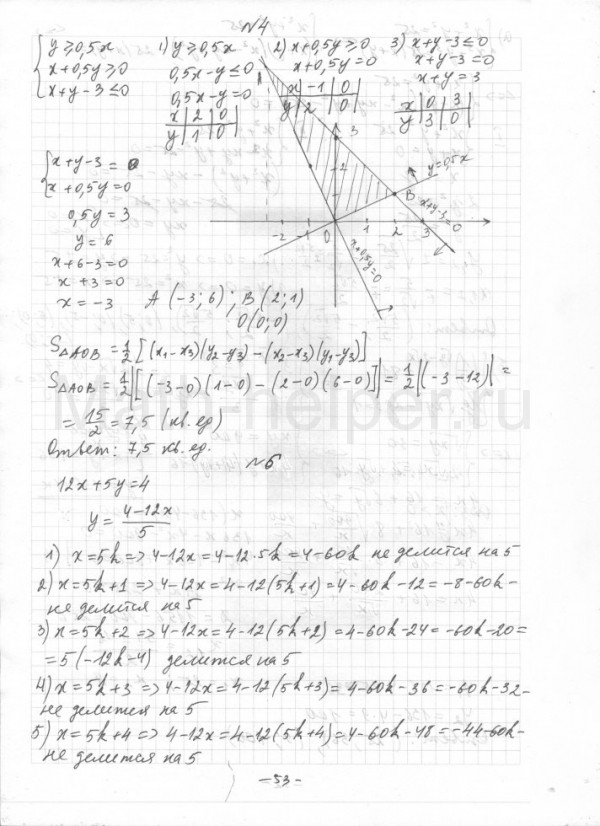 №4
{ y ≥ 0,5x
x + 0,5y ≥ 0
x + y - 3 ≤ 0
1) y ≥ 0,5x
0,5x - y ≤ 0
0,5x - y = 0
x | 2 | 0
y | 1 | 0
2) x + 0,5y ≥ 0
x + 0,5y = 0
x | -1 | 0
y | 2 | 0
3) x + y - 3 ≤ 0
x + y - 3 = 0
x + y = 3
x | 0 | 3
y | 3 | 0
{ x + y - 3 = 0
x + 0,5y = 0
0,5y = 3
y = 6
x + 6 - 3 = 0
x + 3 = 0
x = -3
3
2
y = 0,5x
B
x+y-3=0
-2 -1 0 1 2 3
x+0,5y=0
A (-3; 6); B (2; 1)
O(0; 0)
S△AOB = 1/2 [(x₁-x₃)(y₂-y₃) - (x₂-x₃)(y₁-y₃)]
S△AOB = 1/2 |[(-3-0)(1-0) - (2-0)(6-0)]| = 1/2 |(-3-12)| =
= 15/2 = 7,5 (кв. ед)
Ответ: 7,5 кв. ед.
Math-helper.ru
№5
12x + 5y = 4
y = (4-12x)/5
1) x = 5k => 4-12x = 4-12·5k = 4-60k не делится на 5
2) x = 5k+1 => 4-12x = 4-12(5k+1) = 4-60k-12 = -8-60k -
не делится на 5
3) x = 5k+2 => 4-12x = 4-12(5k+2) = 4-60k-24 = -60k-20 =
= 5(-12k-4) делится на 5
4) x = 5k+3 => 4-12x = 4-12(5k+3) = 4-60k-36 = -60k-32 -
не делится на 5
5) x = 5k+4 => 4-12x = 4-12(5k+4) = 4-60k-48 = -44-60k -
не делится на 5
- 53 -